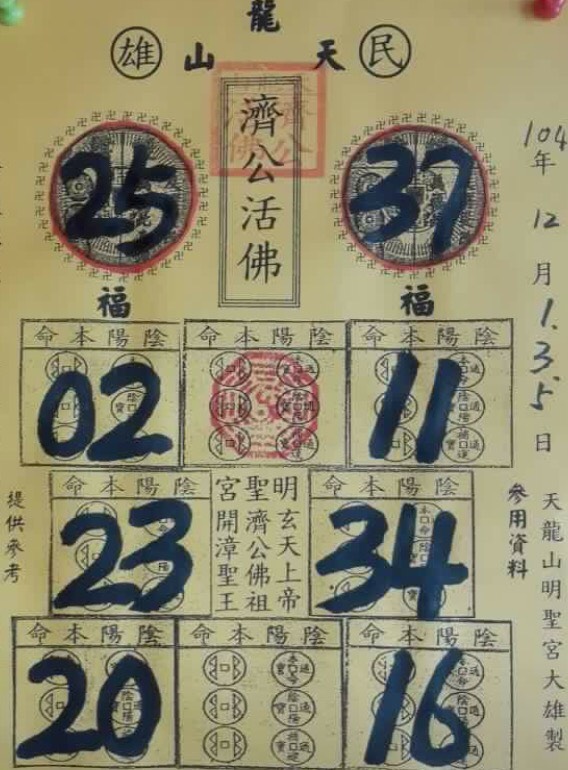 龍
雄 山 天 民
濟公活佛
25 37
福 福
104年12月1.3.5日
命本陽陰 命本陽陰 命本陽陰
02 11
命本陽陰 宮聖明 命本陽陰
23 34
玄天上帝
濟公佛祖
開漳聖王
提供參考
參用資料
天龍山明聖宮大雄製
命本陽陰 命本陽陰 命本陽陰
20 16